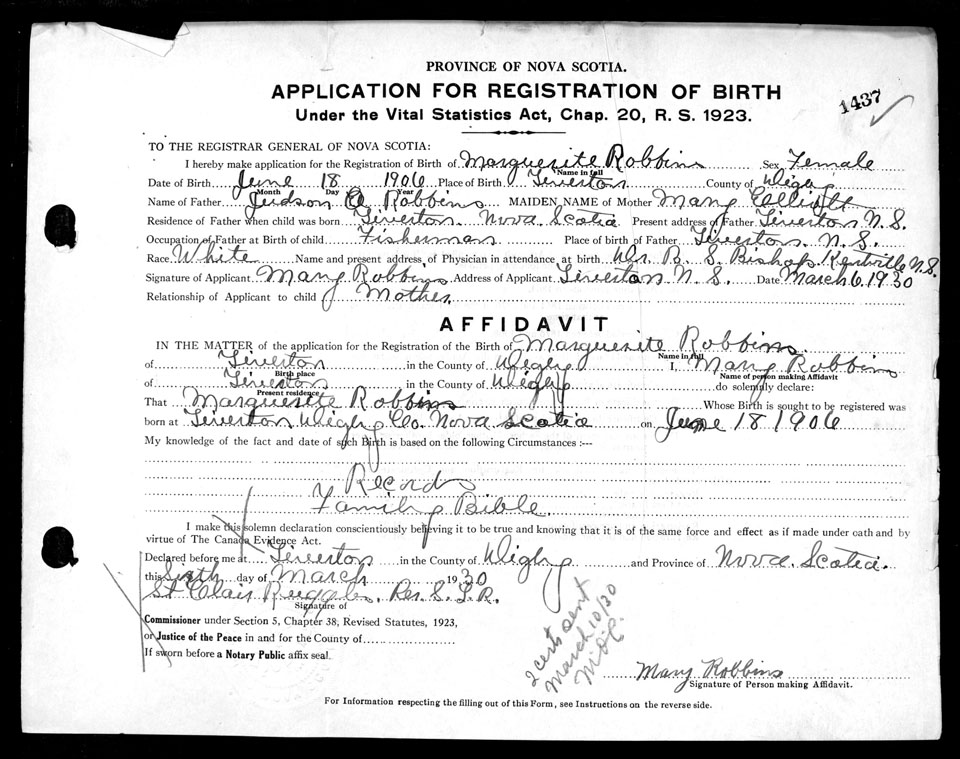 PROVINCE OF NOVA SCOTIA.
APPLICATION FOR REGISTRATION OF BIRTH
1437
Under the Vital Statistics Act, Chap. 20, R. S. 1923.
TO THE REGISTRAR GENERAL OF NOVA SCOTIA:
I hereby make application for the Registration of Birth of Marguerite Robbins Sex Female
Name in full
Date of Birth June 18 1906 Place of Birth Tiverton County of Digby
Month Day Year
Name of Father Judson A Robbins MAIDEN NAME of Mother Mary Elliott
Residence of Father when child was born Tiverton. Nova Scotia Present address of Father Tiverton N. S.
Occupation of Father at Birth of child Fisherman Place of birth of Father Tiverton. N. S.
Race White Name and present address of Physician in attendance at birth Dr. B. S. Bishop Kentville N. S.
Signature of Applicant Mary Robbins Address of Applicant Tiverton N. S. Date March 6, 1930
Relationship of Applicant to child Mother.
AFFIDAVIT
IN THE MATTER of the application for the Registration of the Birth of Marguerite Robbins.
Name in full
of Tiverton in the County of Digby I, Mary Robbins
Birth place Name of person making Affidavit
of Tiverton in the County of Digby do solemnly declare:
Present residence
That Marguerite Robbins Whose Birth is sought to be registered was
born at Tiverton Digby Co. Nova Scotia on June 18 1906
My knowledge of the fact and date of such Birth is based on the following Circumstances :—
Records
Family Bible.
I make this solemn declaration conscientiously believing it to be true and knowing that it is of the same force and effect as if made under oath and by
virtue of The Canada Evidence Act.
Declared before me at Tiverton in the County of Digby and Province of Nova. Scotia.
this Sixth day of March 1930
St Clair Ruggles.
Signature of
Commissioner under Section 5, Chapter 38, Revised Statutes, 1923,
or Justice of the Peace in and for the County of
If sworn before a Notary Public affix seal.
2 certs sent
March 10/30
Mary Robbins
Signature of Person making Affidavit.
For Information respecting the filling out of this Form, see Instructions on the reverse side.